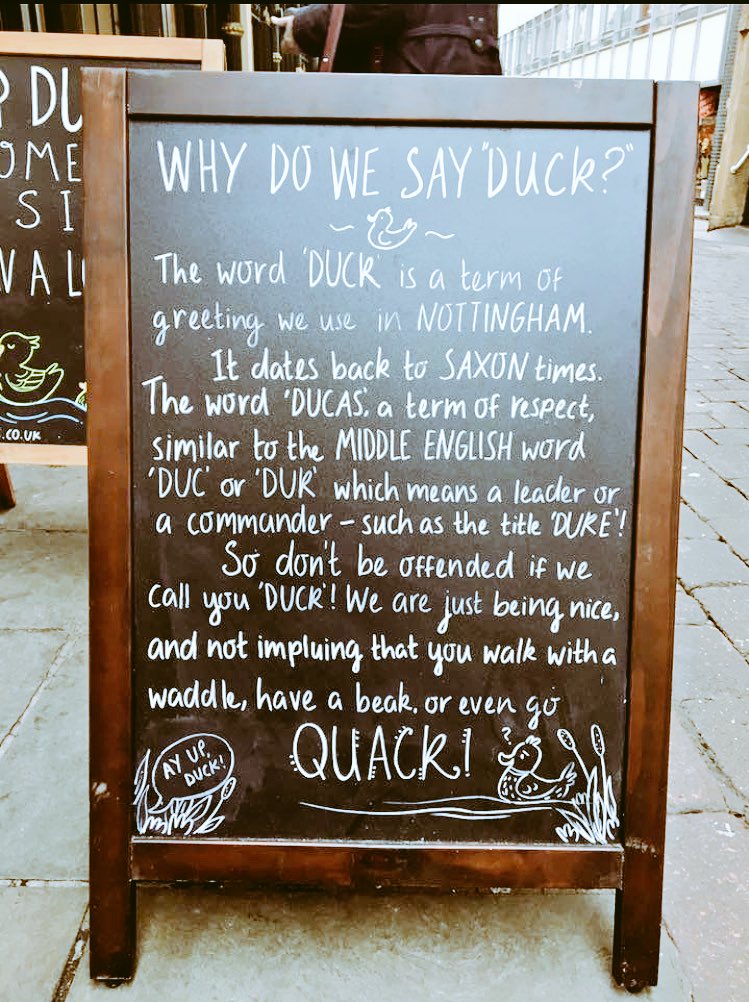 WHY DO WE SAY "DUCK?"
The word 'DUCK' is a term of
greeting we use in NOTTINGHAM.
It dates back to SAXON times.
The word 'DUCAS', a term of respect,
similar to the MIDDLE ENGLISH word
'DUC' or 'DUK' which means a leader or
a commander – such as the title 'DUKE'!
So don't be offended if we
call you 'DUCK'! We are just being nice,
and not impluing that you walk with a
waddle, have a beak, or even go
QUACK!
AY UP,
DUCK!
?
P DU
OME
SI
VAL
.CO.UK